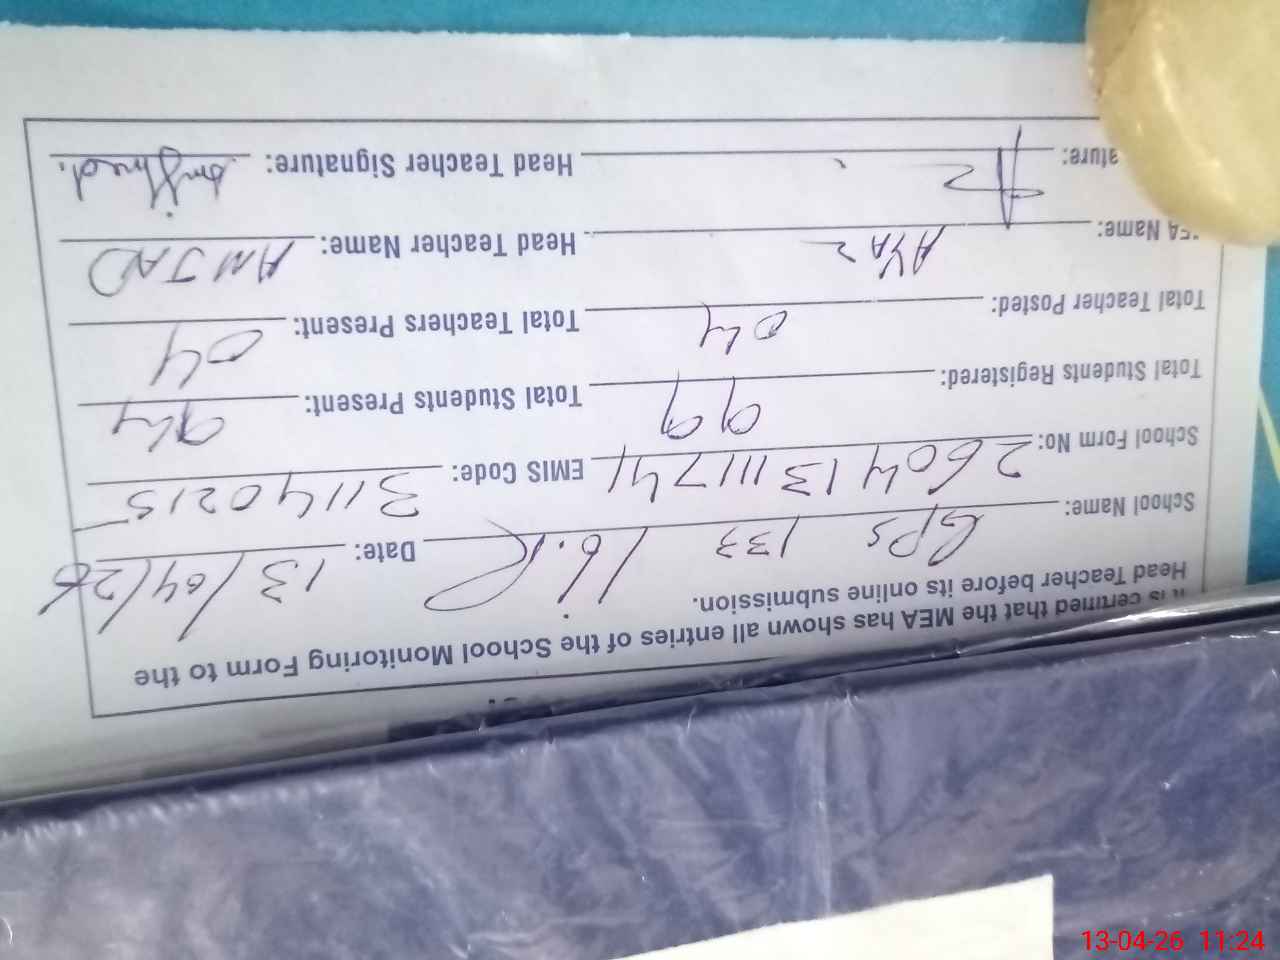 It is certified that the MEA has shown all entries of the School Monitoring Form to the
Head Teacher before its online submission.
School Name: GPS 133 16.L Date: 13/04/26
School Form No: 2604131111741 EMIS Code: 31140215
Total Students Registered: 99 Total Students Present: 94
Total Teacher Posted: 04 Total Teachers Present: 04
MEA Name: AYAZ Head Teacher Name: AMJAD
ature: Head Teacher Signature:
13-04-26 11:24